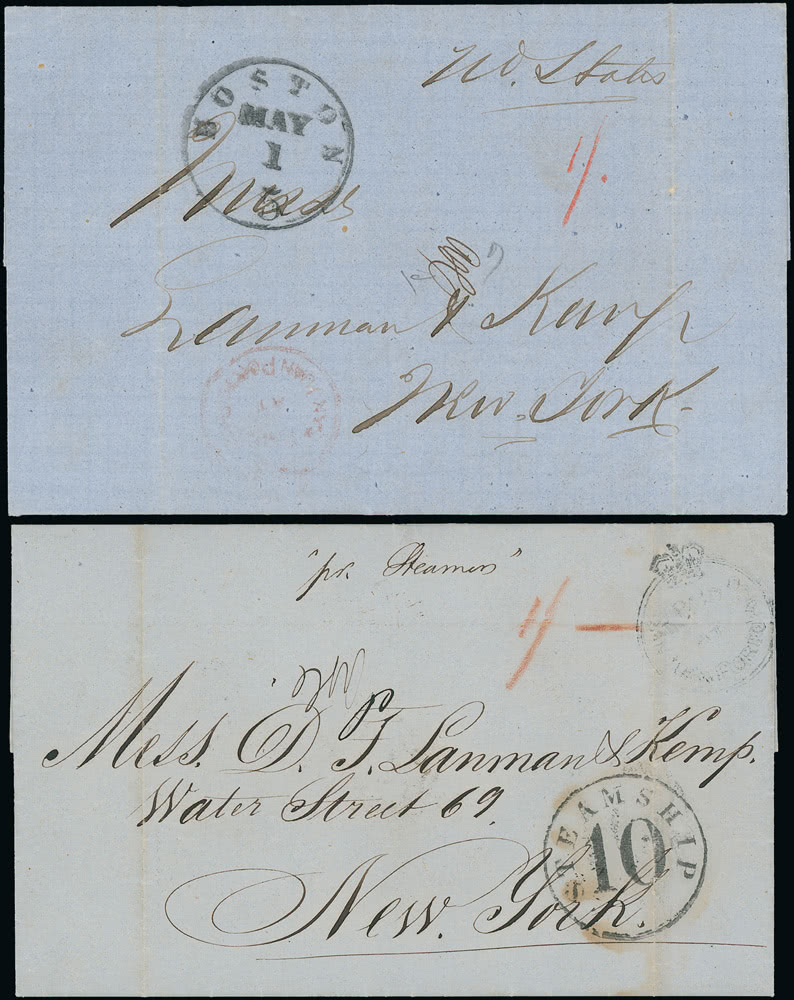 Ud. States
BOSTON
MAY
1
5
1/.
Messrs
Lanman & Kemp
New York
"pr. Steamers"
1/—
Mess. D. T. Lanman & Kemp.
Water Street 69.
STEAMSHIP
10
New York.